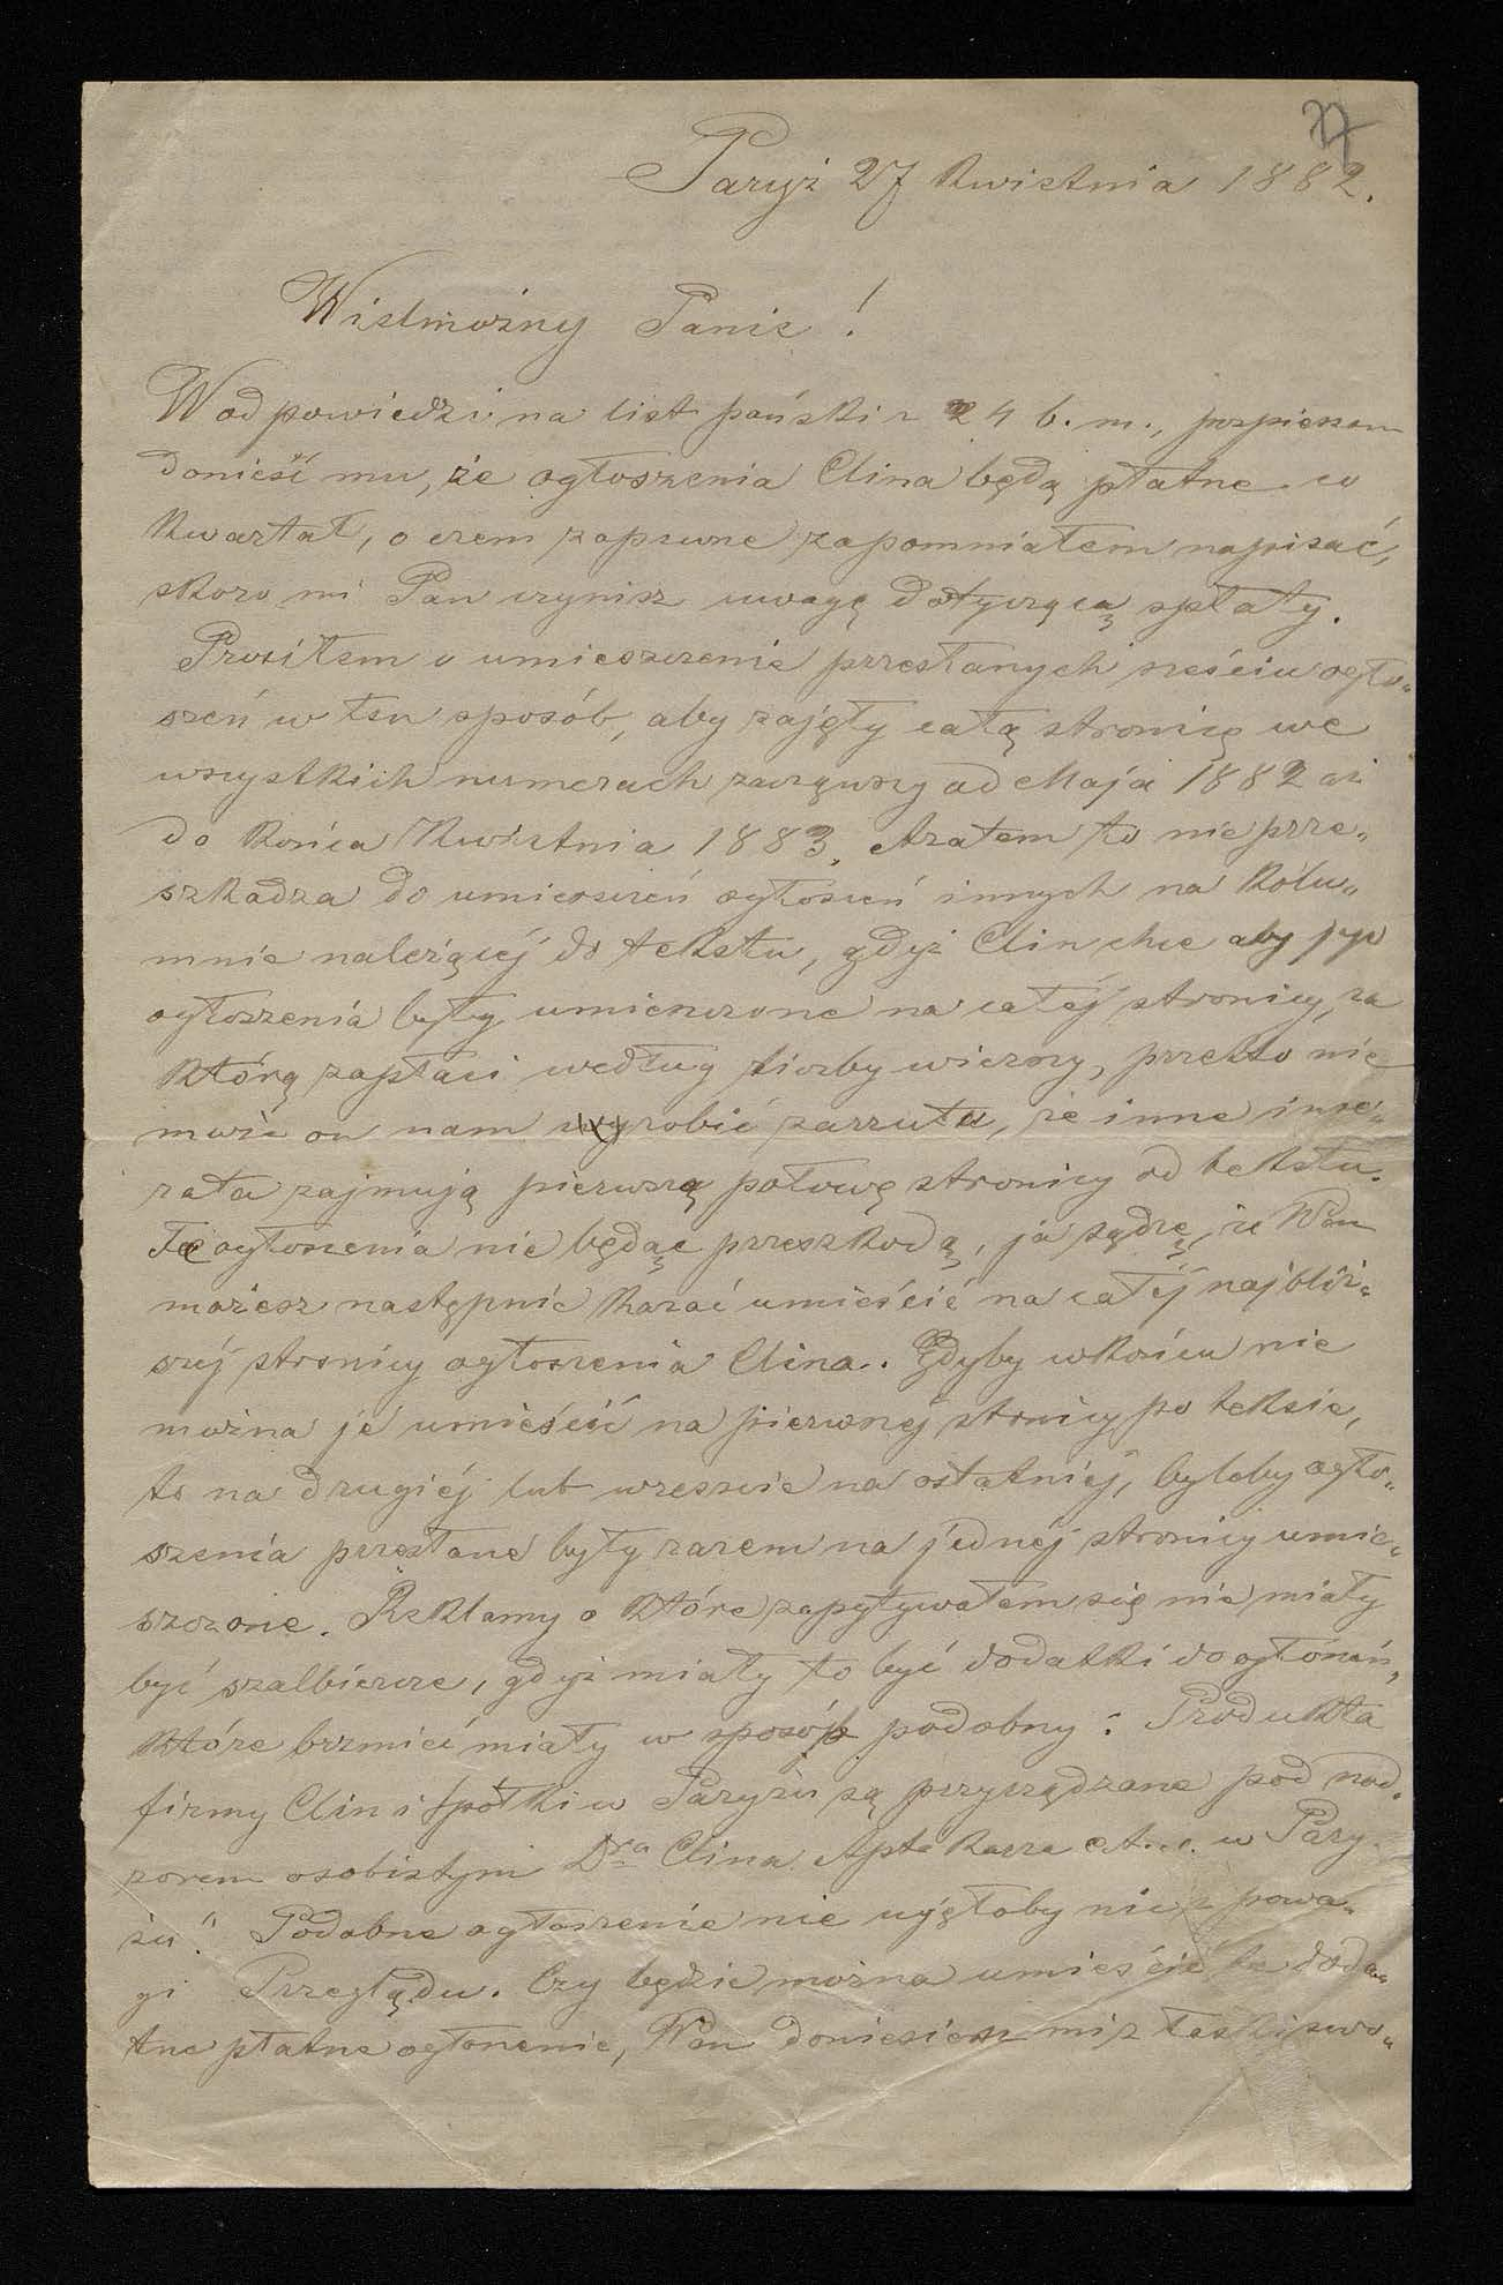 27
Paryż 27 Kwietnia 1882.
Wielmożny Panie!
W odpowiedzi na list pański z 24 b. m., pospieszam
donieść mu, że ogłoszenia Clina będą płatne co
kwartał, o czem zapewne zapomniałem napisać,
skoro mi Pan czynisz uwagę dotyczącą spłaty.
Prosiłem o umieszczenie przesłanych sześciu ogło„
szeń w ten sposób, aby zajęły całą stronicę we
wszystkich numerach zacząwszy od Maja 1882 aż
do końca Kwietnia 1883. Azatem to nie prze„
szkadza do umieszczeń ogłoszeń innych na kolu„
mnie należącéj do tekstu, gdyż Clin chce aby jego
ogłoszenia były umieszczone na całéj stronicy, za
którą zapłaci według liczby wierszy, przeto nie
może on nam zrobić zarzutu, że inne inse„
rata zajmują pierwszą połowę stronicy od tekstu.
Te ogłoszenia nie będąc przeszkodą, ja sądzę, że Pan
możesz następnie kazać umieścić na całéj najbliż„
széj stronicy ogłoszenia Clina. Gdyby wkońcu nie
można je umieścić na pierwszej stronicy po tekscie,
to na drugiéj lub wreszcie na ostatniéj, byleby ogło„
szenia przesłane były razem na jednéj stronicy umie„
szczone. Reklamy o które zapytywałem się nie miały
być szalbiercze, gdyż miały to być dodatki do ogłoszeń,
które brzmieć miały w sposób podobny: Produkta
firmy Clin i Spółki w Paryżu są przyrządzane pod nad„
zorem osobistym Dra Clina Aptekarza etc. w Pary„
żu." Podobne ogłoszenie nie ujęłoby nic z powa„
gi Przeglądu. Czy będzie można umieścić te doda„
tne płatne ogłoszenie, Pan doniesiesz mi z łaski swo„